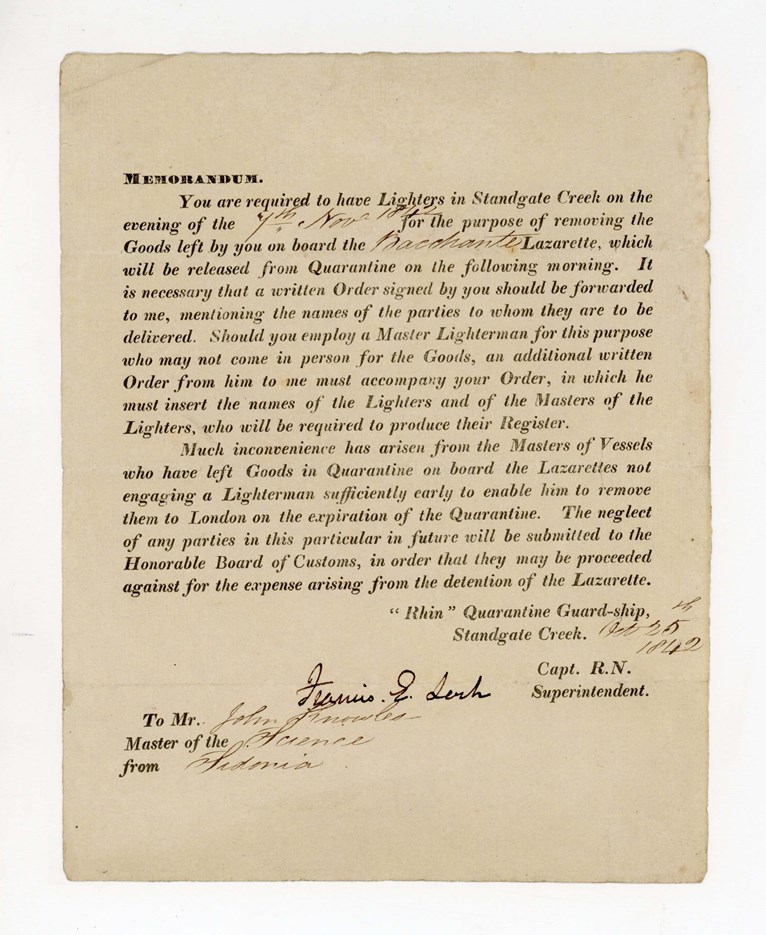 MEMORANDUM.
You are required to have Lighters in Standgate Creek on the
evening of the 7th Novr 1842 for the purpose of removing the
Goods left by you on board the Bacchante Lazarette, which
will be released from Quarantine on the following morning. It
is necessary that a written Order signed by you should be forwarded
to me, mentioning the names of the parties to whom they are to be
delivered. Should you employ a Master Lighterman for this purpose
who may not come in person for the Goods, an additional written
Order from him to me must accompany your Order, in which he
must insert the names of the Lighters and of the Masters of the
Lighters, who will be required to produce their Register.
Much inconvenience has arisen from the Masters of Vessels
who have left Goods in Quarantine on board the Lazarettes not
engaging a Lighterman sufficiently early to enable him to remove
them to London on the expiration of the Quarantine. The neglect
of any parties in this particular in future will be submitted to the
Honorable Board of Customs, in order that they may be proceeded
against for the expense arising from the detention of the Lazarette.
“Rhin” Quarantine Guard-ship,
Standgate Creek. 25th
1842
Capt. R.N.
Francis E. Superintendent.
To Mr. John Knowles
Master of the Science
from